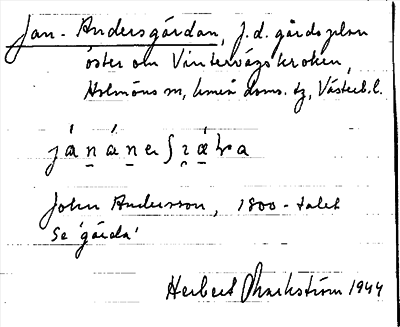 Jan-Andersgårdan, f.d. gårdsplan
öster om Vintervägskroken,
Holmöns sn, Umeå doms. tg, Västerb. l.
John Andersson, 1800-talet
Se 'gårda'
Herbert Markström 1944